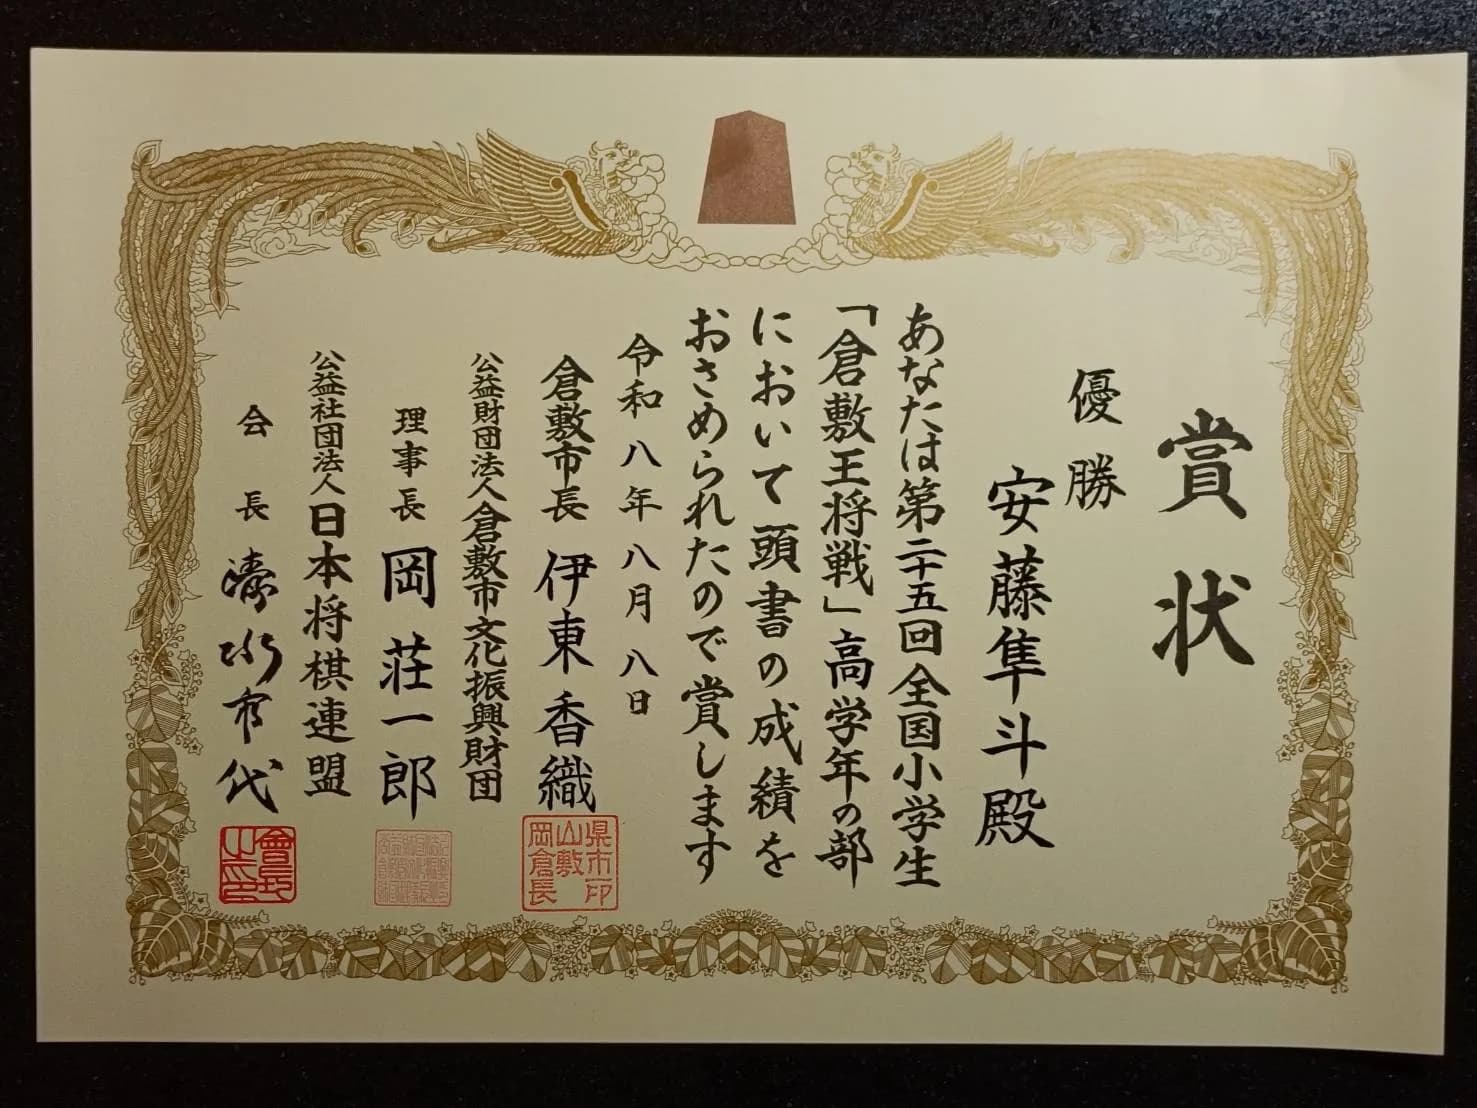 賞状
優勝
安藤隼斗殿
あなたは第二十五回全国小学生
「倉敷王将戦」高学年の部
において頭書の成績を
おさめられたので賞します
令和八年八月八日
倉敷市長 伊東香織
公益財団法人倉敷市文化振興財団
理事長 岡荘一郎
公益社団法人日本将棋連盟
会長 清水市代
岡山県倉敷市長印
會長之印